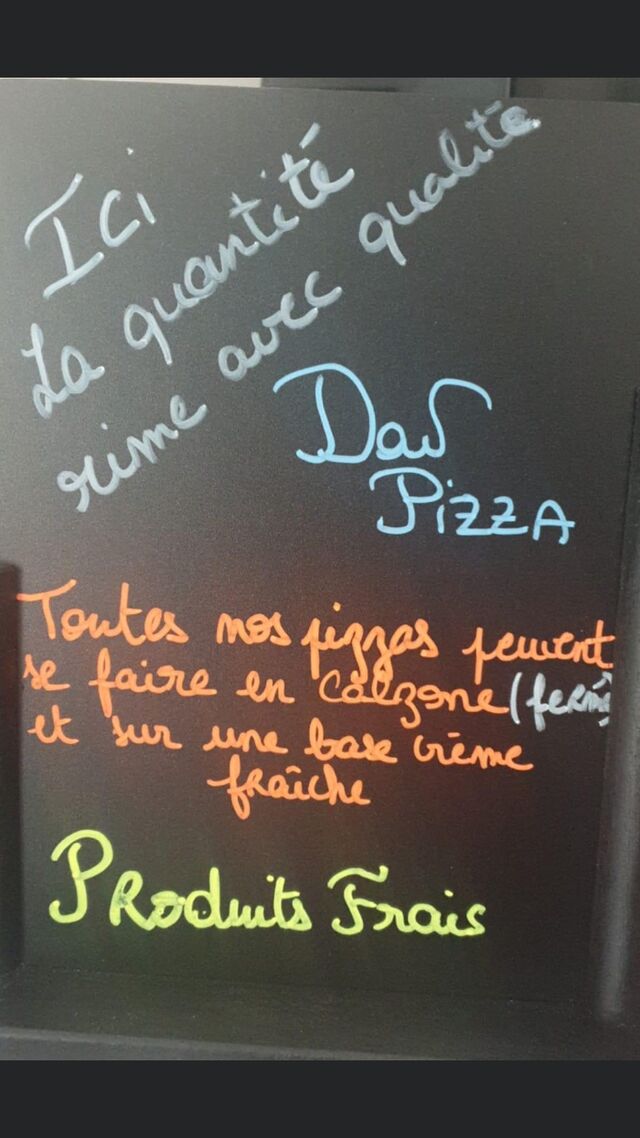 Ici
La quantité
rime avec qualité
Dav
PizzA
Toutes nos pizzas peuvent
se faire en calzone (fermé
et sur une base crème
fraîche
Produits Frais